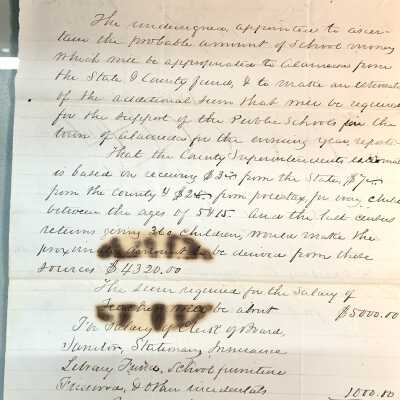 The undersigned, appointed to ascer-
tain the probable amount of School money
which will be appropriated to Alameda from
the State & County funds, & to make an estimate
of the additional sum that will be required
for the support of the Public Schools in the
town of Alameda for the ensuing year, report
That the County Superintendents estimate
is based on receiving $3 from the State, $7
from the County & $2 from poll tax, for every child
between the ages of 5 & 15. And the last census
returns giving 360 children, would make the
amount to be derived from these
sources $4320.00
The sum required for the Salary of
Teachers will be about $5000.00
For Salary of Clerk of Board,
Janitor, Stationary Insurance
Library Fund, School furniture
Firewood, & other incidentals 1000.00